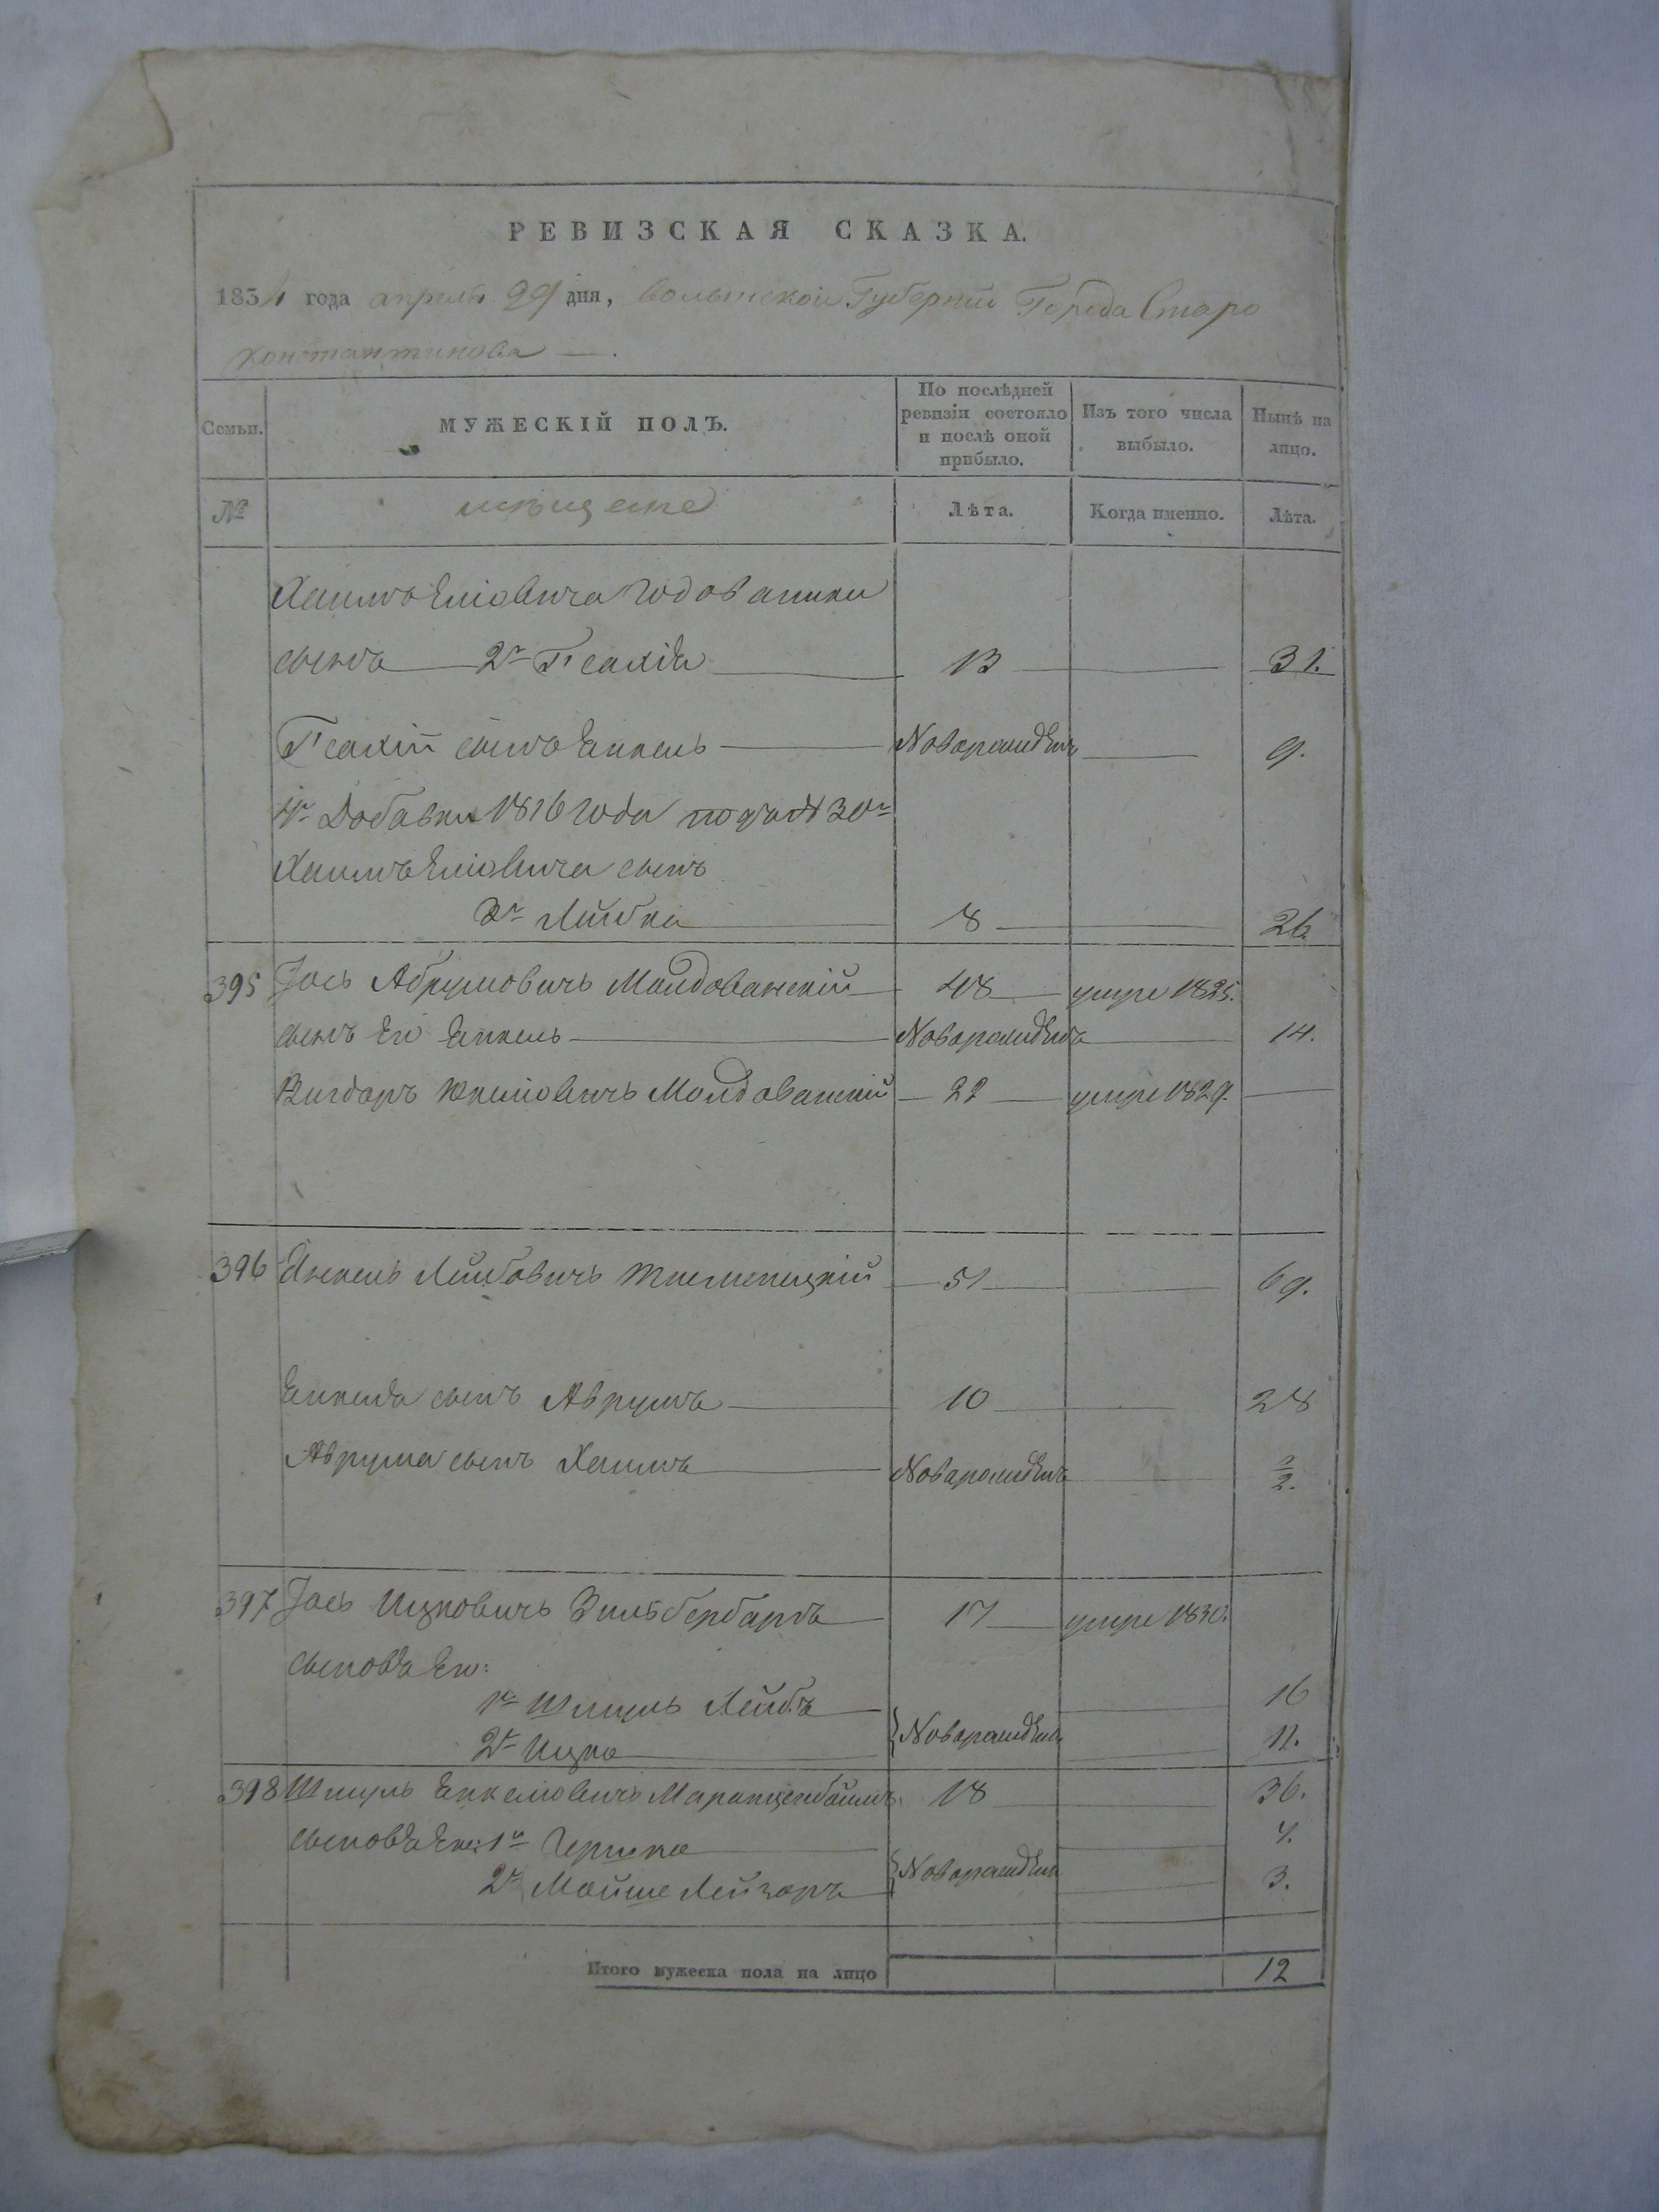 РЕВИЗСКАЯ СКАЗКА.
1834 года апреля 29 дня, Волынской Губернии Города Старо
константинова —.
Семьи. МУЖЕСКІЙ ПОЛЪ. По послѣдней ревизіи состояло и послѣ оной прибыло. Изъ того числа выбыло. Нынѣ на лицо.
№ мѣщане Лѣта. Когда именно. Лѣта.
Хаима
сынъ 2й 13 — 31.
сынъ Янкель Новорожденъ — 9.
4й Добавки 1816 года под № 30м
Хаима сынъ
3й Лейбка 8 — 26
395 Іось Абрумовичъ Молдованскій 48 умре 1825.
сынъ Его Янкель Новорожденъ — 14.
Вигдоръ Молдованскій 22 умре 1829. —
396 Янкель Лейбовичъ 51 — 69.
Янкеля сынъ Аврумъ 10 — 28
Аврума сынъ Хаимъ Новорожденъ — 1/2.
397 Іось Ицковичъ Зильбербарть 17 умре 1830.
сыновья Его:
1й Шмуль Лейбъ 16
2й Ицко } Новорожденны — 11.
398 Шмуль Янкелевичъ 18 — 36.
сыновья Его: 1й Гершко 4.
2й Мойше Лейзоръ } Новорожденны — 3.
Итого мужеска пола на лицо 12